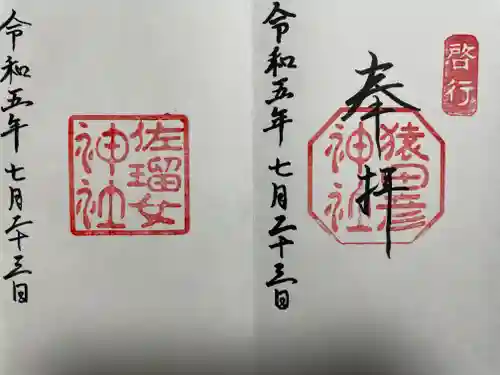 啓行
奉拝
猿田彦
神社
令和五年七月二十三日
佐瑠女
神社
令和五年七月二十三日